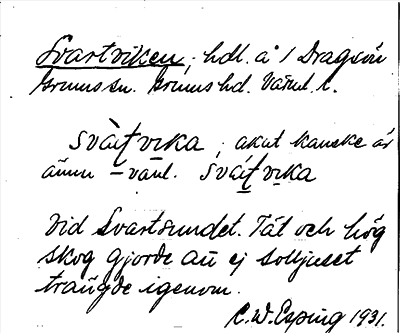 Svartviken, hdl. å 1 Dragsön
Grums sn. Grums hd. Värml. l.
svàʈvɪka, akut kanske är
ännu – vanl. sváʈvɪka
Vid Svartsundet. Tät och hög
skog gjorde att ej solljuset
trängde igenom.
C.W. Esping 1931.